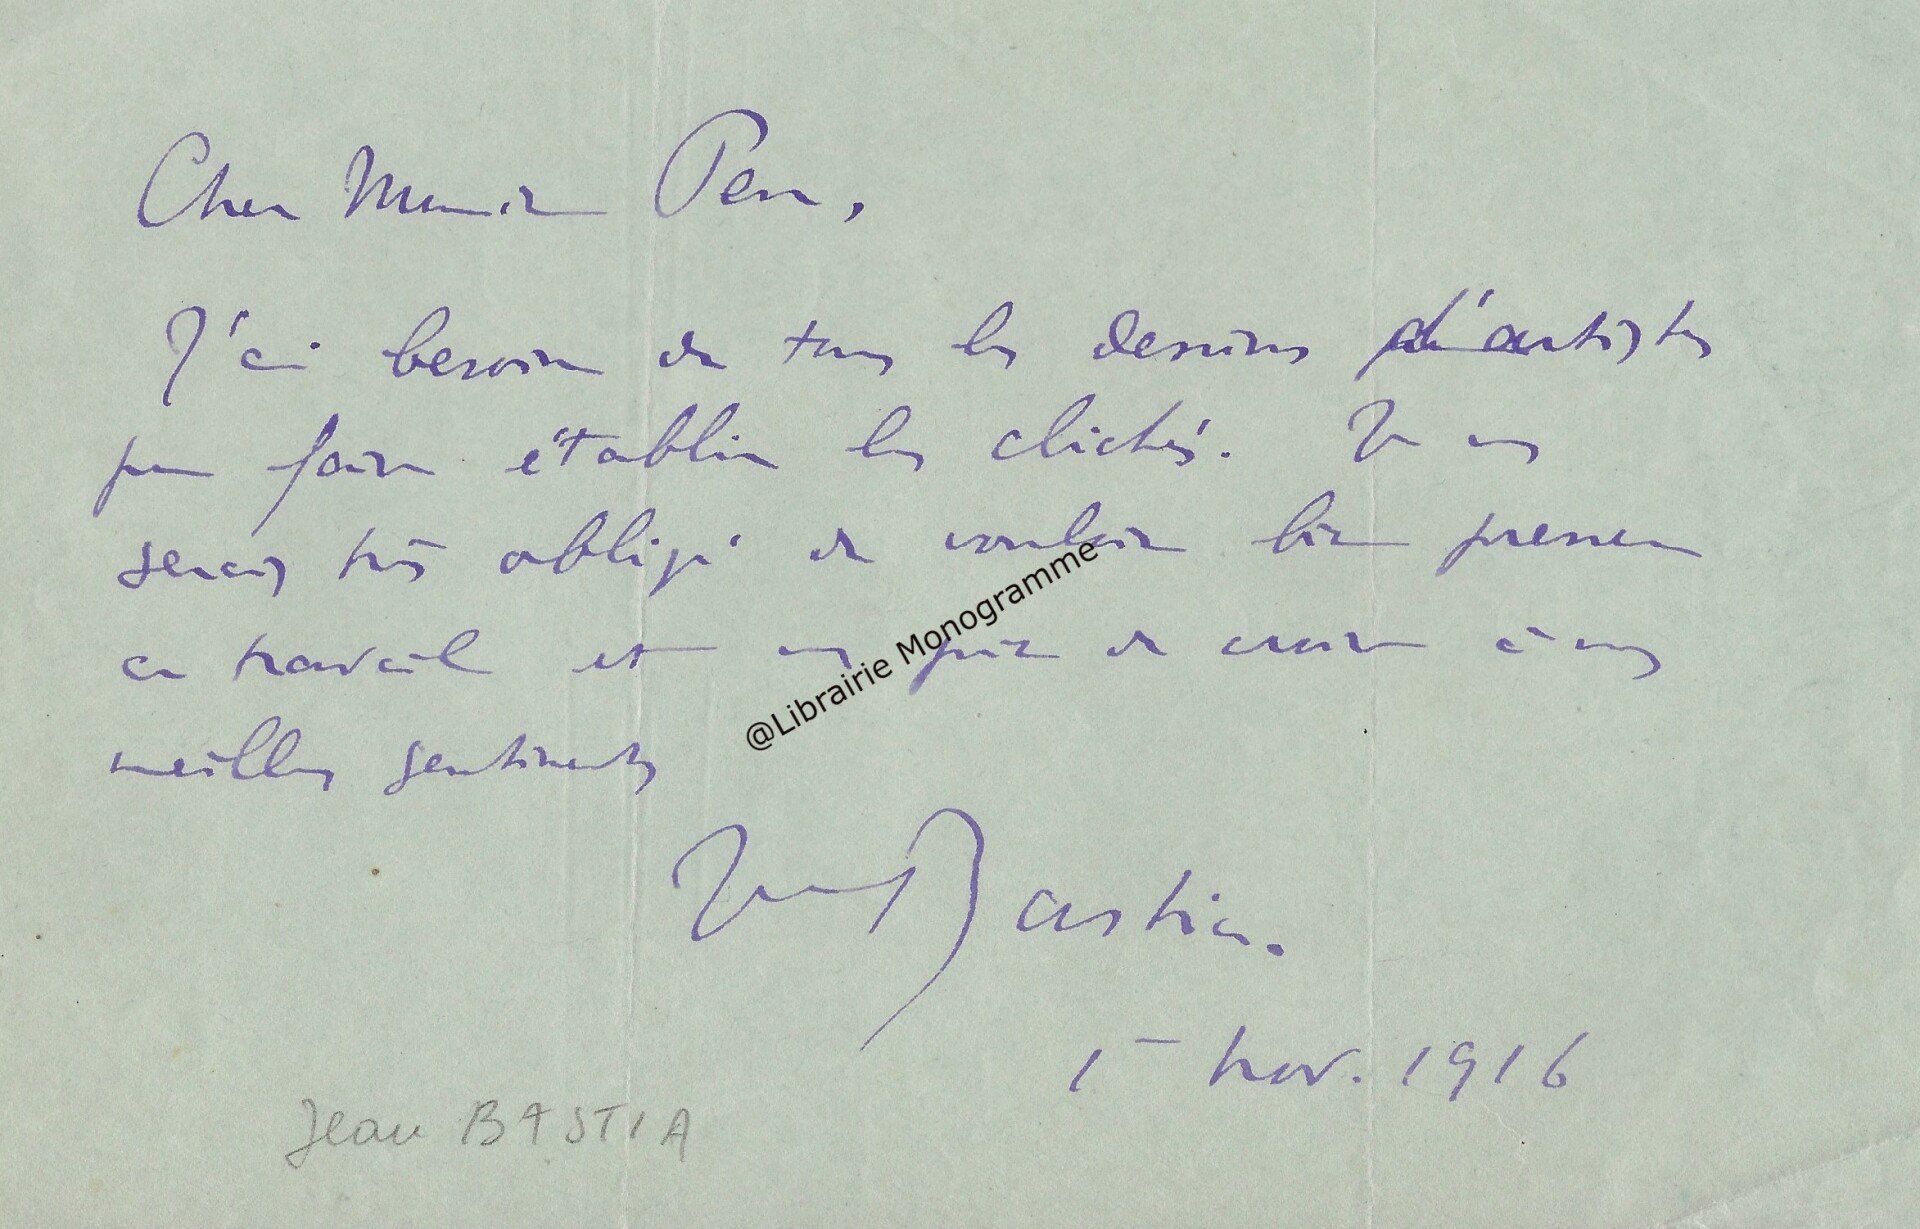 Cher Monsieur
J'ai besoin de tous les dessins d'artistes
pour faire établir les clichés. Je vous
serais très obligé de vouloir bien presser
ce travail et vous prie de croire à mes
meilleurs sentiments
@Librairie Monogramme
Jean Bastia.
1er nov. 1916
Jean BASTIA